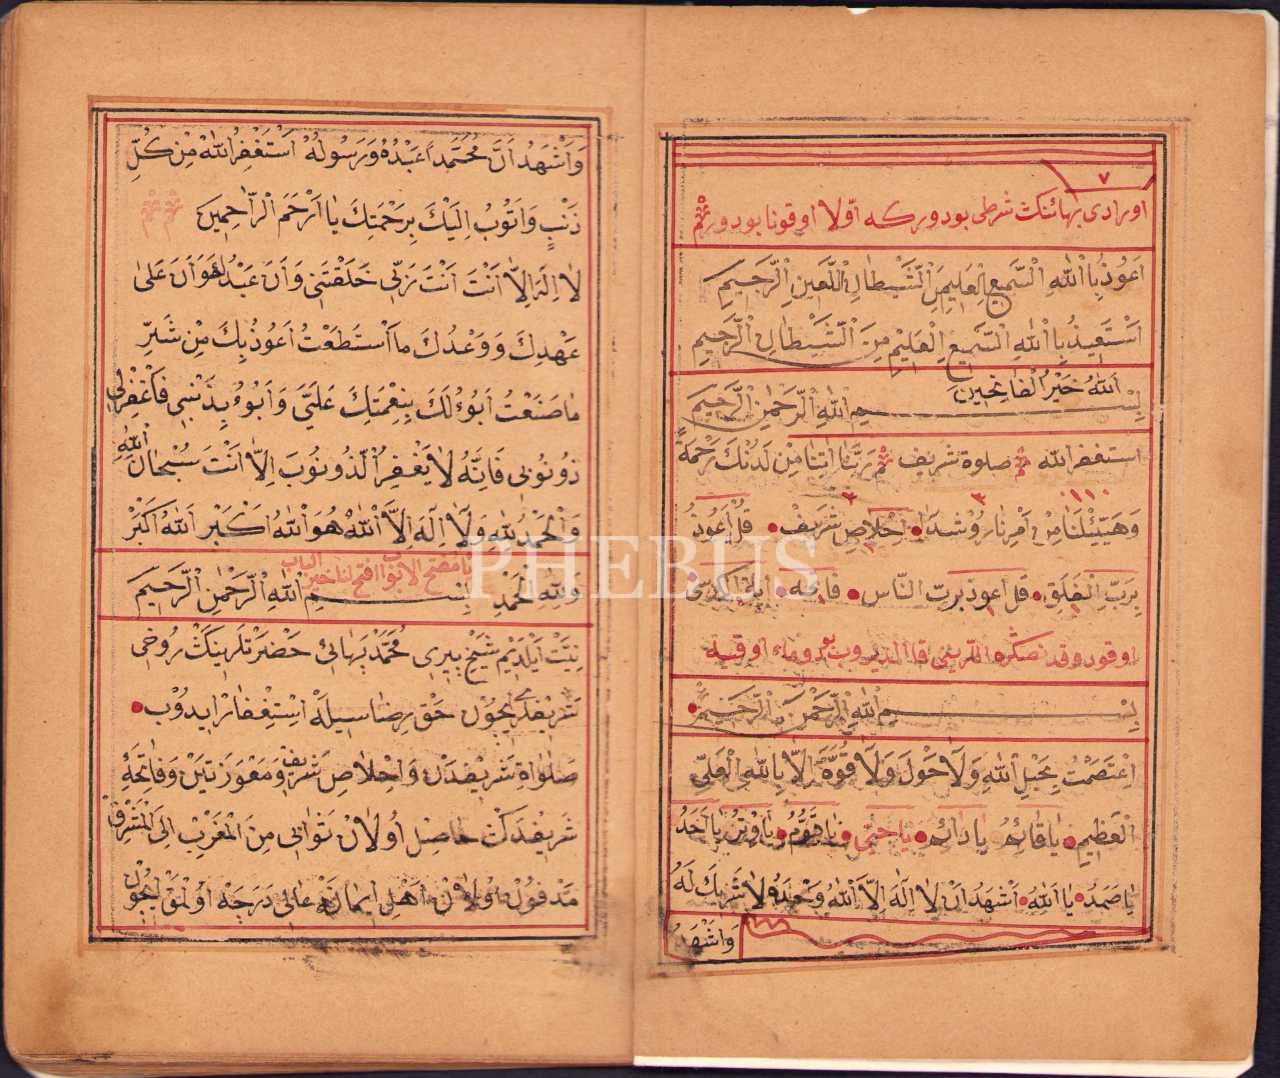 ٧
اورادى بهائنك شرطى بودوركه اوّلا اوقونا بودور
اَعُوذُ بِاللّٰهِ السَّمِيعِ الْعَلِيمِ مِنَ الشَّيْطَانِ اللَّعِينِ الرَّجِيمِ
اَسْتَعِيذُ بِاللّٰهِ السَّمِيعِ الْعَلِيمِ مِنَ الشَّيْطَانِ الرَّجِيمِ
اَللّٰهُ خَيْرُ الْفَاتِحِينَ
بِسْمِ اللّٰهِ الرَّحْمٰنِ الرَّحِيمِ
استغفر الله صلوة شريف رَبَّنَا اٰتِنَا مِنْ لَدُنْكَ رَحْمَةً
وَهَيِّئْ لَنَا مِنْ اَمْرِنَا رُوشَدًا اِخْلَاصِ شَرِيفْ قُلْ اَعُوذُ
بِرَبِّ الْفَلَقِ قل اعوذ برب النّاس فاتحه
بِسْمِ اللّٰهِ الرَّحْمٰنِ الرَّحِيمِ
اِعْتَصَمْتُ بِحَبْلِ اللّٰهِ وَلَا حَوْلَ وَلَا قُوَّةَ اِلَّا بِاللّٰهِ الْعَلِىِّ
الْعَظِيمِ يَا قَائِمُ يَا دَائِمُ يَا حَىُّ يَا قَيُّومُ يَا وِتْرُ يَا اَحَدُ
يَا صَمَدُ يَا اَللّٰهُ اَشْهَدُ اَنْ لَا اِلٰهَ اِلَّا اللّٰهُ وَحْدَهُ لَا شَرِيكَ لَهُ
وَاَشْهَدُ
وَاَشْهَدُ اَنَّ مُحَمَّدًا عَبْدُهُ وَرَسُولُهُ اَسْتَغْفِرُ اللّٰهَ مِنْ كُلِّ
ذَنْبٍ وَاَتُوبُ اِلَيْكَ بِرَحْمَتِكَ يَا اَرْحَمَ الرَّاحِمِينَ
لَا اِلٰهَ اِلَّا اَنْتَ اَنْتَ رَبِّى خَلَقْتَنِى وَاَنَ عَبْدُكَ وَاَنَ عَلٰى
عَهْدِكَ وَوَعْدُكَ مَا اسْتَطَعْتُ اَعُوذُ بِكَ مِنْ شَرِّ
مَا صَنَعْتُ اَبُوءُ لَكَ بِنِعْمَتِكَ عَلَىَّ وَاَبُوءُ بِذَنْبِى فَاغْفِرْلِى
ذُونُوبِى فَاِنَّهُ لَا يَغْفِرُ الذُّونُوبَ اِلَّا اَنْتَ سُبْحَانَ اللّٰهِ
وَالْحَمْدُ لِلّٰهِ وَلَا اِلٰهَ اِلَّا اللّٰهُ هُوَ اللّٰهُ اَكْبَرْ اَللّٰهُ اَكْبَرْ
يا مفتح الابواب افتح لنا خير الباب
وَلِلّٰهِ الْحَمْدِ بِسْمِ اللّٰهِ الرَّحْمٰنِ الرَّحِيمِ
نِيَّتْ اَيْلَدِيْمِ شَيْخْ بِيرِى مُحَمَّدْ بَهَائِىْ حَضْرَتْلَرِينِكْ رُوحِى
شَرِيفْلَرِى اِيچُونْ حَقْ رِضَاسِيلَهْ اِسْتِغْفَارْ اِيدُوْبْ
صَلَوَاةِ شَرِيفَدَنْ وَاِخْلَاصِ شَرِيفْ وَمَعْوَزَتَيْنْ وَفَاتِحَهٔ
شَرِيفَدَنْ حَاصِلْ اُولَانْ ثَوَابِى مِنَ الْمَغْرِبْ اِلَى الْمَشْرِقْ
مَدْفُونْ اُولَانْ اَهْلِ اِيمَانْ عَالِى دَرَجَهْ اُولْمَقْ اِيچُونْ
PHEBUS